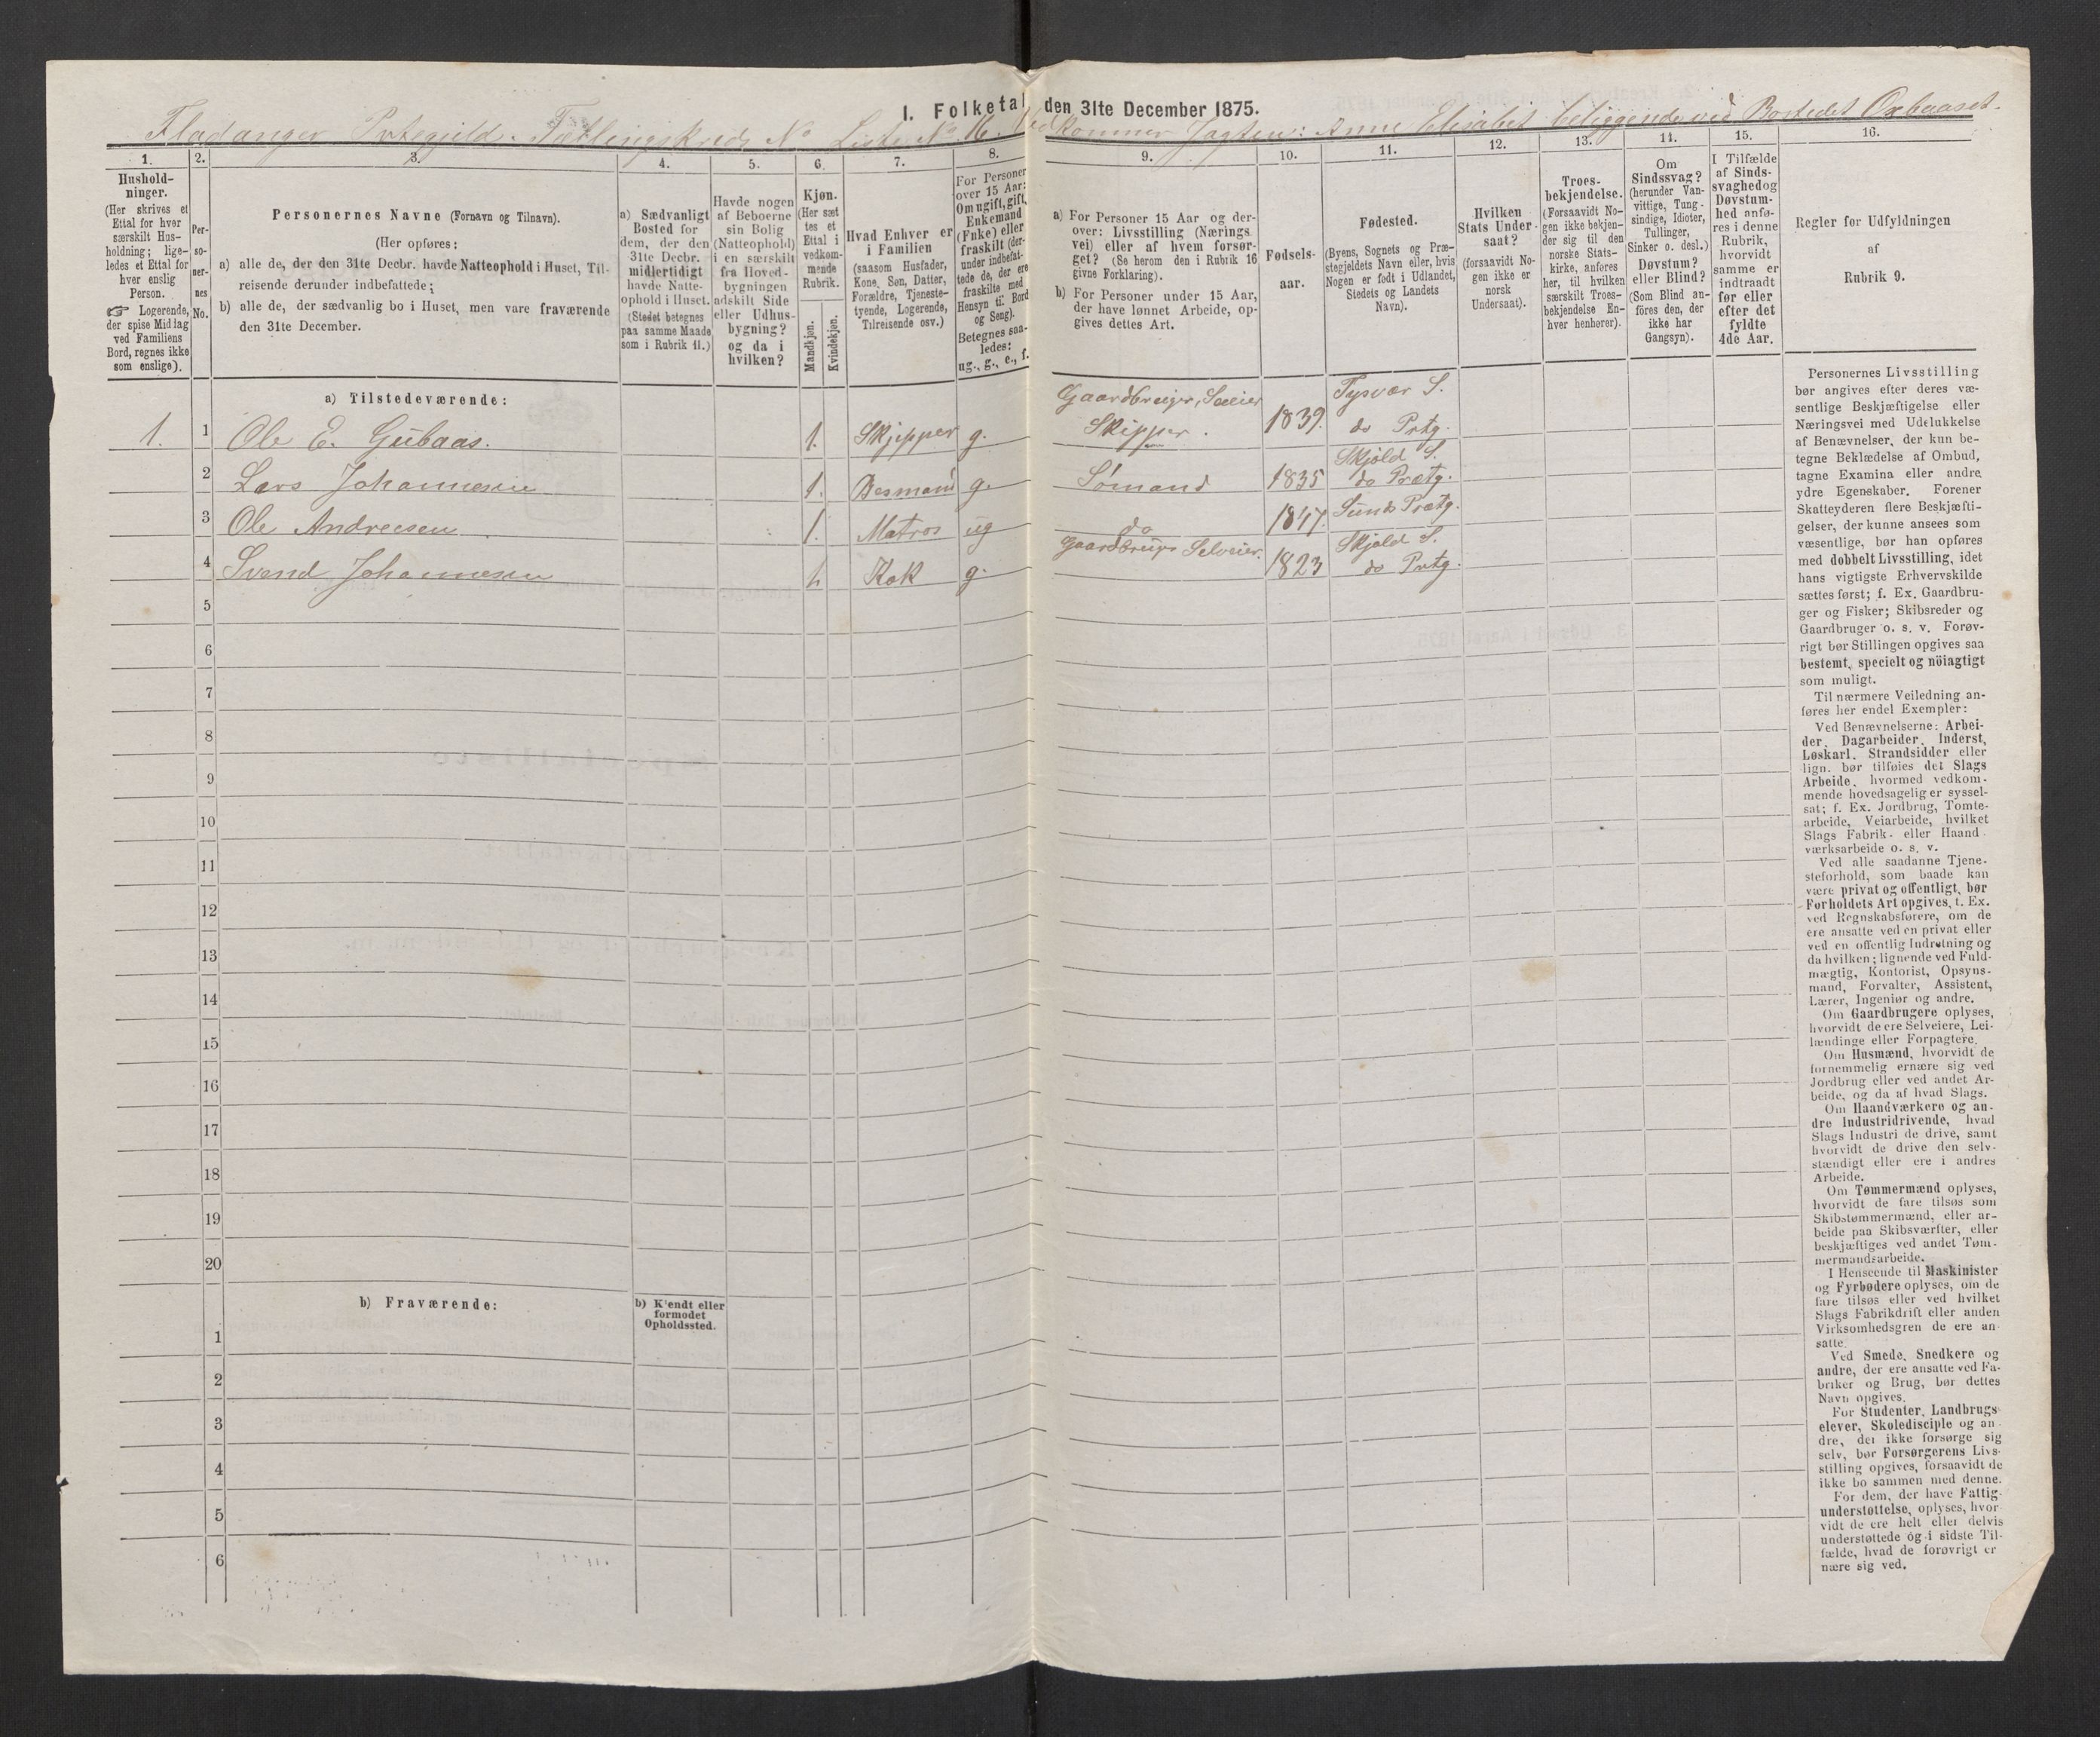 I. Folketal den 31te December 1875.
Fladanger Prstegjeld. Tællingskreds No Liste No 16. Vedkommer Jagten: Anne Elisabet beliggende ved Bostedet Oxbaaset.
1.
Husholdninger.
(Her skrives et
Ettal for hver
særskilt Hus-
holdning; lige-
ledes et Ettal for
hver enslig
Person.
☞ Logerende,
der spise Middag
ved Familiens
Bord, regnes ikke
som enslige).
2.
Per-
so-
ner-
nes
No.
3.
Personernes Navne (Fornavn og Tilnavn).
(Her opføres:
a) alle de, der den 31te Decbr. havde Natteophold i Huset, Til-
reisende derunder indbefattede;
b) alle de, der sædvanlig bo i Huset, men vare fraværende
den 31te December.
4.
a) Sædvanligt
Bosted for
dem, der den
31te Decbr.
midlertidigt
havde Natte-
ophold i Huset.
(Stedet betegnes
paa samme Maade
som i Rubrik 11.)
5.
Havde nogen
af Beboerne
sin Bolig
(Natteophold)
i en særskilt
fra Hoved-
bygningen
adskilt Side
eller Udhus-
bygning?
og da i
hvilken?
6.
Kjøn.
(Her sæt
tes et
Ettal i
vedkom-
mende
Rubrik.
Mandkjøn.
Kvindekjøn.
7.
Hvad Enhver er
i Familien
(saasom Husfader,
Kone, Søn, Datter,
Forældre, Tjeneste-
tyende, Logerende,
Tilreisende osv.)
8.
For Personer
over 15 Aar:
Om ugift, gift,
Enkemand
(Enke) eller
fraskilt (der-
under indbefat-
tede de, der ere
fraskilte med
Hensyn til Bord
og Seng).
Betegnes saa-
ledes:
ug., g., e., f.
9.
a) For Personer 15 Aar og der-
over: Livsstilling (Nærings
vei) eller af hvem forsør-
get? (Se herom den i Rubrik 16
givne Forklaring).
b) For Personer under 15 Aar,
der have lønnet Arbeide, op-
gives dettes Art.
10.
Fødsels-
aar.
11.
Fødested.
(Byens, Sognets og Præ-
stegjeldets Navn eller, hvis
Nogen er født i Udlandet,
Stedets og Landets
Navn).
12.
Hvilken
Stats Under-
saat?
(forsaavidt No-
gen ikke er
norsk
Undersaat).
13.
Troes-
bekjendelse.
(Forsaavidt No-
gen ikke bekjen-
der sig til den
norske Stats-
kirke, anføres
her, til hvilken
særskilt Troes-
bekjendelse En-
hver henhører).
14.
Om
Sindssvag?
(herunder Van-
vittige, Tung-
sindige, Idioter,
Tullinger,
Sinker o. desl.)
Døvstum?
eller Blind?
(Som Blind an-
føres den, der
ikke har
Gangsyn).
15.
I Tilfælde
af Sinds-
svaghed og
Døvstum-
hed anfø-
res i denne
Rubrik,
hvorvidt
samme er
indtraadt
før eller
efter det
fyldte
4de Aar.
16.
Regler for Udfyldningen
af
Rubrik 9.
a) Tilstedeværende:
1. 1 Ole E. Gübaas. 1. Skjipper g. Gaardbruger, Selveier Skipper. 1839. Tysvær S. do Prtg.
2 Lars Johannesen 1. Besmand g. Sømand 1835 Skjold S. do Prætg.
3 Ole Andreesen 1. Matros ug do 1847. Sunds Prætg.
4 Svend Johannesen 1. Kok g. Gaardbruger Selveier. 1823 Skjold S. do Prtg.
5
6
7
8
9
10
11
12
13
14
15
16
17
18
19
20
b) Fraværende:
b) Kjendt eller
formodet
Opholdssted.
1
2
3
4
5
6
Personernes Livsstilling
bør angives efter deres væ-
sentlige Beskjæftigelse eller
Næringsvei med Udelukkelse
af Benævnelser, der kun be-
tegne Beklædelse af Ombud,
tagne Examina eller andre
ydre Egenskaber. Forener
Skatteyderen flere Beskjæfti-
gelser, der kunne ansees som
væsentlige, bør han opføres
med dobbelt Livsstilling, idet
hans vigtigste Erhvervskilde
sættes først; f. Ex. Gaardbru-
ger og Fisker; Skibsreder og
Gaardbruger o. s. v. Forøv-
rigt bør Stillingen opgives saa
bestemt, specielt og nöiagtigt
som muligt.
Til nærmere Veiledning an-
føres her endel Exempler:
Ved Benævnelserne: Arbei-
der, Dagarbeider, Inderst,
Løskarl, Strandsidder eller
lign. bør tilføies det Slags
Arbeide, hvormed vedkom-
mende hovedsagelig er syssel-
sat; f. Ex. Jordbrug, Tomte-
arbeide, Veiarbeide, hvilket
Slags Fabrik- eller Haand-
værksarbeide o. s. v.
Ved alle saadanne Tjene-
steforhold, som baade kan
være privat og offentligt, bør
Forholdets Art opgives, t. Ex.
ved Regnskabsførere, om de
ere ansatte ved en privat eller
ved en offentlig Indretning og
da hvilken; lignende ved Fuld-
mægtig, Kontorist, Opsyns-
mand, Forvalter, Assistent,
Lærer, Ingeniør og andre.
Om Gaardbrugere oplyses,
hvorvidt de ere Selveiere, Lei-
lændinge eller Forpagtere.
Om Husmænd, hvorvidt de
fornemmelig ernære sig ved
Jordbrug eller ved andet Ar-
beide, og da af hvad Slags.
Om Haandværkere og an-
dre Industridrivende, hvad
Slags Industri de drive, samt
hvorvidt de drive den selv-
stændigt eller ere i andres
Arbeide.
Om Tømmermænd oplyses,
hvorvidt de fare tilsøs som
Skibstømmermænd, eller ar-
beide paa Skibsværfter, eller
beskjæftiges ved andet Tøm-
mermandsarbeide.
I Henseende til Maskinister
og Fyrbødere oplyses, om de
fare tilsøs eller ved hvilket
Slags Fabrikdrift eller anden
Virksomhedsgren de ere an-
satte.
Ved Smede, Snedkere og
andre, der ere ansatte ved Fa-
briker og Brug, bør dettes
Navn opgives.
For Studenter, Landbrugs-
elever, Skoledisciple og an-
dre, der ikke forsørge sig
selv, bør Forsørgerens Livs-
stilling opgives, forsaavidt de
ikke bo sammen med denne.
For dem, der have Fattig-
understøttelse, oplyses, hvor-
vidt de ere helt eller delvis
understøttede og i sidste Til-
fælde, hvad de forøvrigt er
nære sig ved.